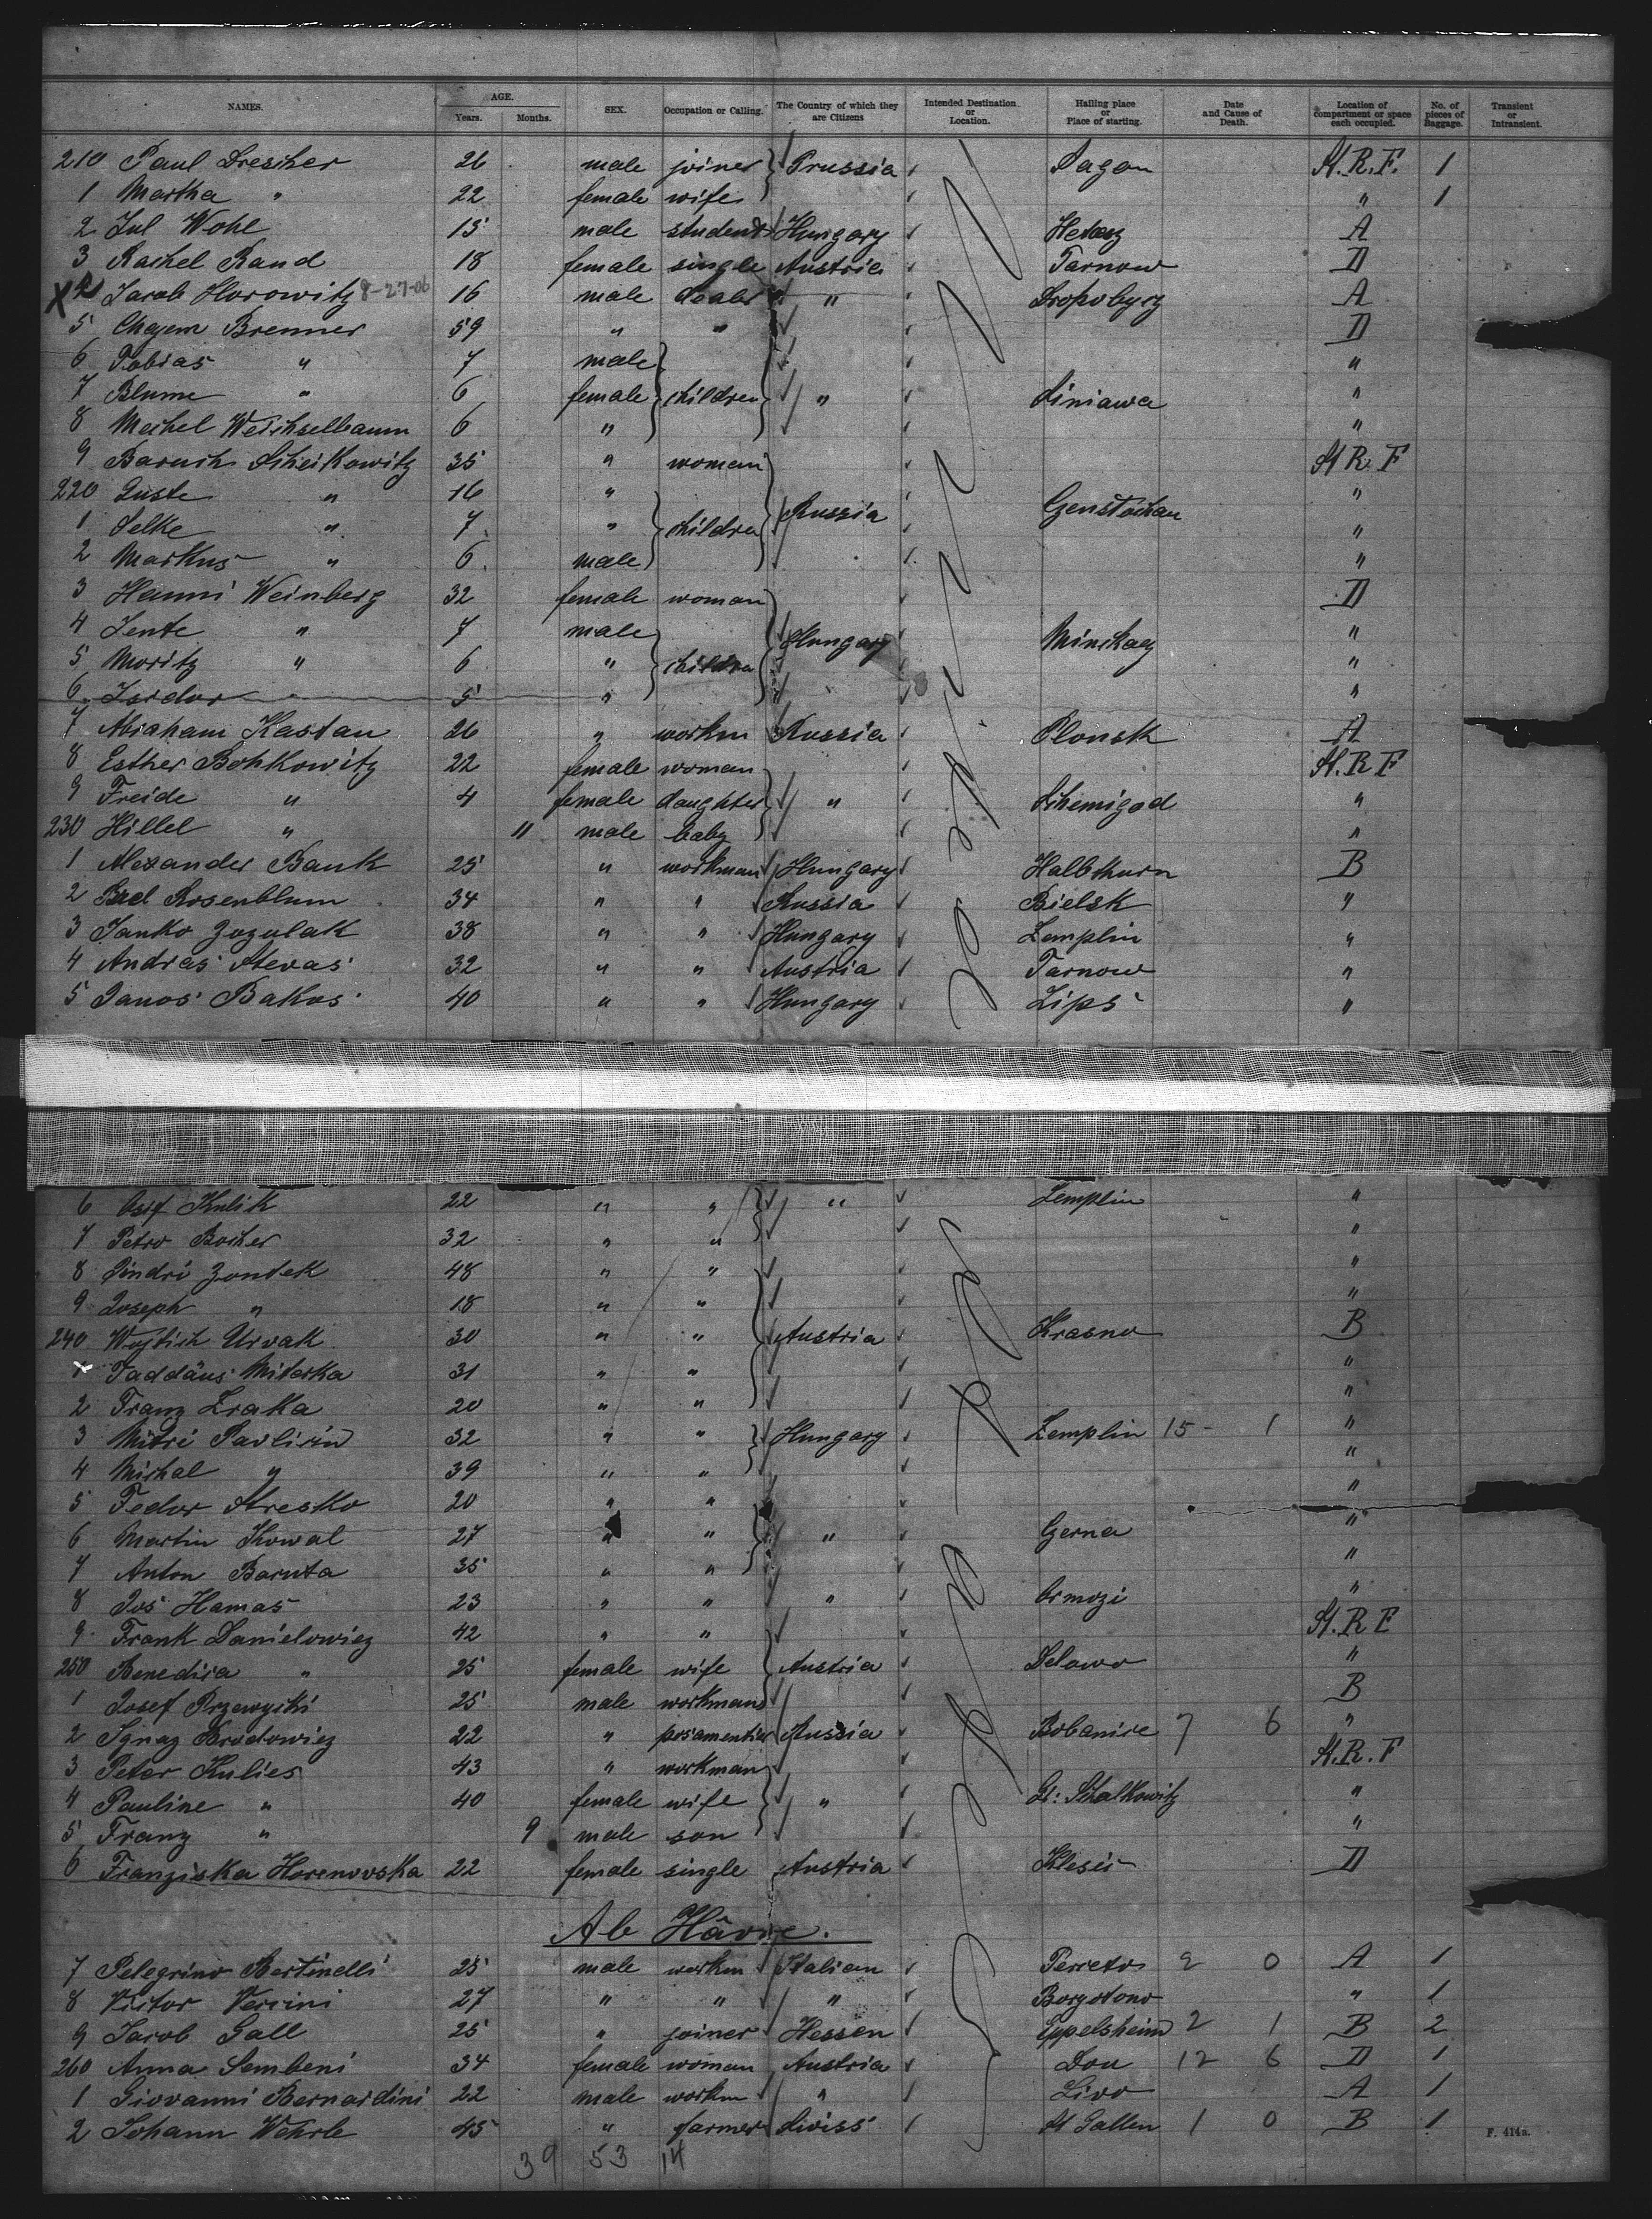 NAMES. AGE. Years. Months. SEX. Occupation or Calling. The Country of which they are Citizens Intended Destination or Location. Hailing place or Place of starting. Date and Cause of Death. Location of compartment or space each occupied. No. of pieces of Baggage. Transient or Intransient.
210 Paul Drescher 26 male joiner Prussia Sagan St.R.F. 1
1 Martha " 22 female wife " 1
2 Jul Wohl 15 male student Hungary A
3 Rachel Rand 18 female single Austria Tarnow D
X 4 Jacob Horowitz 8-27-06 16 male dealer " Dropobycz A
5 Chajem Brenner 59 " " D
6 Tobias " 7 male "
7 Blume " 6 female children " Siniawa "
8 Mechel Weichselbaum 6 " "
9 Baruch Scheikowitz 35 " woman St R. F
220 Guste " 16 " "
1 Selke " 7 " children Russia Czenstochau "
2 Markus " 6 male "
3 Hanni Weinberg 32 female woman D
4 Zente " 7 male Hungary "
5 Moritz " 6 " children "
6 Isidor " 5 " "
7 Abraham Kastan 26 " workm Russia Plonsk A
8 Esther Bohkowitz 22 female woman St.R F
9 Freide " 4 female daughter " "
230 Hillel " 11 male baby "
1 Alexander Bank 25 " workman Hungary Halbthurn B
2 Rosenblum 34 " " Russia Bielsk "
3 Janko Zozulak 38 " " Hungary Zemplin "
4 Andras Stevas 32 " " Austria Tarnow "
5 Janos Bakos 40 " " Hungary Zips "
6 Osif Kulik 22 " " " Zemplin "
7 Petro Bocher 32 " " "
8 Zontek 48 " " "
9 Joseph " 18 " " "
240 Wojtich Urvak 30 " " Austria Krasno B
1 Taddäus Miterka 31 " " "
2 Franz Zraka 20 " " "
3 Mitri Pavlicin 32 " " Hungary Zemplin 15 - 1 "
4 Michal " 39 " " "
5 Fedor Stresko 20 " " "
6 Martin Kowal 27 " " " Czerna "
7 Anton Baruta 35 " " "
8 Jos Hamas 23 " " " Ormozi "
9 Frank Danielowicz 42 " " St.R F
250 Benedica " 25 female wife Austria Delowo "
1 Josef 25 male workman B
2 Ignaz 22 " posamentier Russia 7 6 "
3 Peter Kulies 43 " workman St.R.F
4 Pauline " 40 female wife " "
5 Franz " 9 male son "
6 Franziska Horenovska 22 female single Austria D
Ab Hâvre.
7 Pelegrino Bertinelli 25 male workm Italien Perreto 2 0 A 1
8 Victor Vercini 27 " " " Borgotono " 1
9 Jacob Gall 25 " joiner Hessen Eppelsheim 2 1 B 2
260 Anna Sembeni 34 female woman Austria Don 12 6 D 1
1 Giovanni Bernardini 22 male workm " Livo A 1
2 Johann Wehrle 45 " farmer Swiss St Gallen 1 0 B 1
F. 414a.
39 53 14